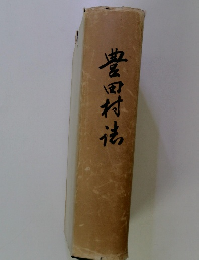 豊田村誌